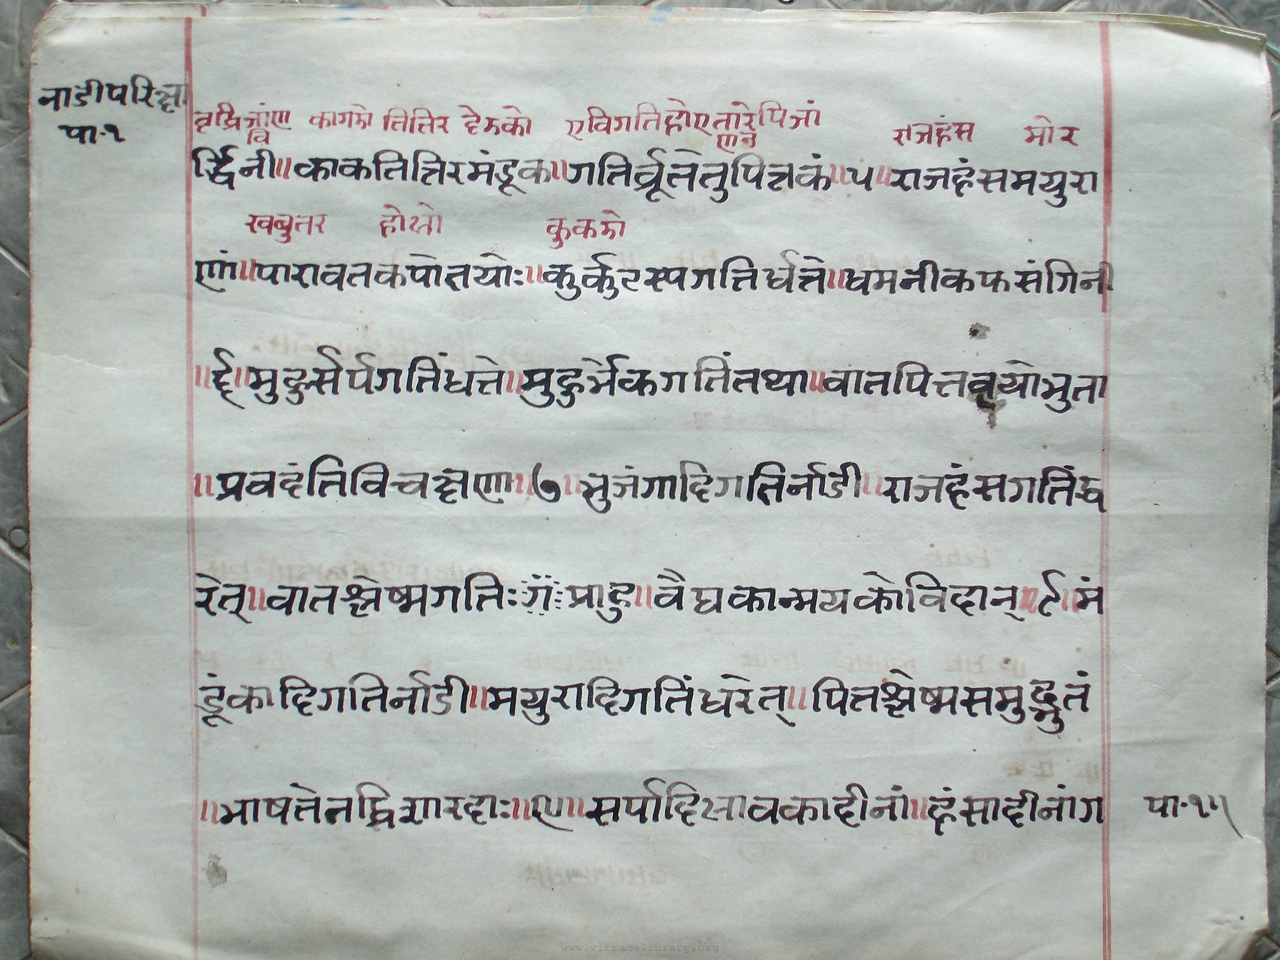 नाडीपरिक्षा
पा॰१
कागडो तित्तिर हेडको एविगतिहोए तारेपिजां राजहंस मोर
र्द्धिनी॥काकतित्तिरमंडूक॥गतिर्ब्रूतेतुपित्तकं॥५॥राजहंसमयुरा
खबुतर होलो कुकडो
णां॥पारावतकपोतयोः॥कुर्कुटस्पगतिर्धत्ते॥धमनीकफसंगिनी
॥६॥मुहुर्सर्पगतिंधत्ते॥मुहुर्भेकगतिंतथा॥वातपित्त
॥प्रवदंतिविचक्षणा॥७॥भुजंगादिगतिर्नाडी॥राजहंसगतिंध
रेत्॥वातश्लेष्मगतिः प्राहु॥वैद्यकान्मयकोविदान्॥८॥मं
डूंकादिगतिर्नाडी॥मयुरादिगतिंधरेत्॥पित्तश्लेष्मसमुद्भुतं
॥भाषतेतद्विशारदाः॥९॥सर्पादिलावकादीनां॥हंसादीनांग
पा॰१